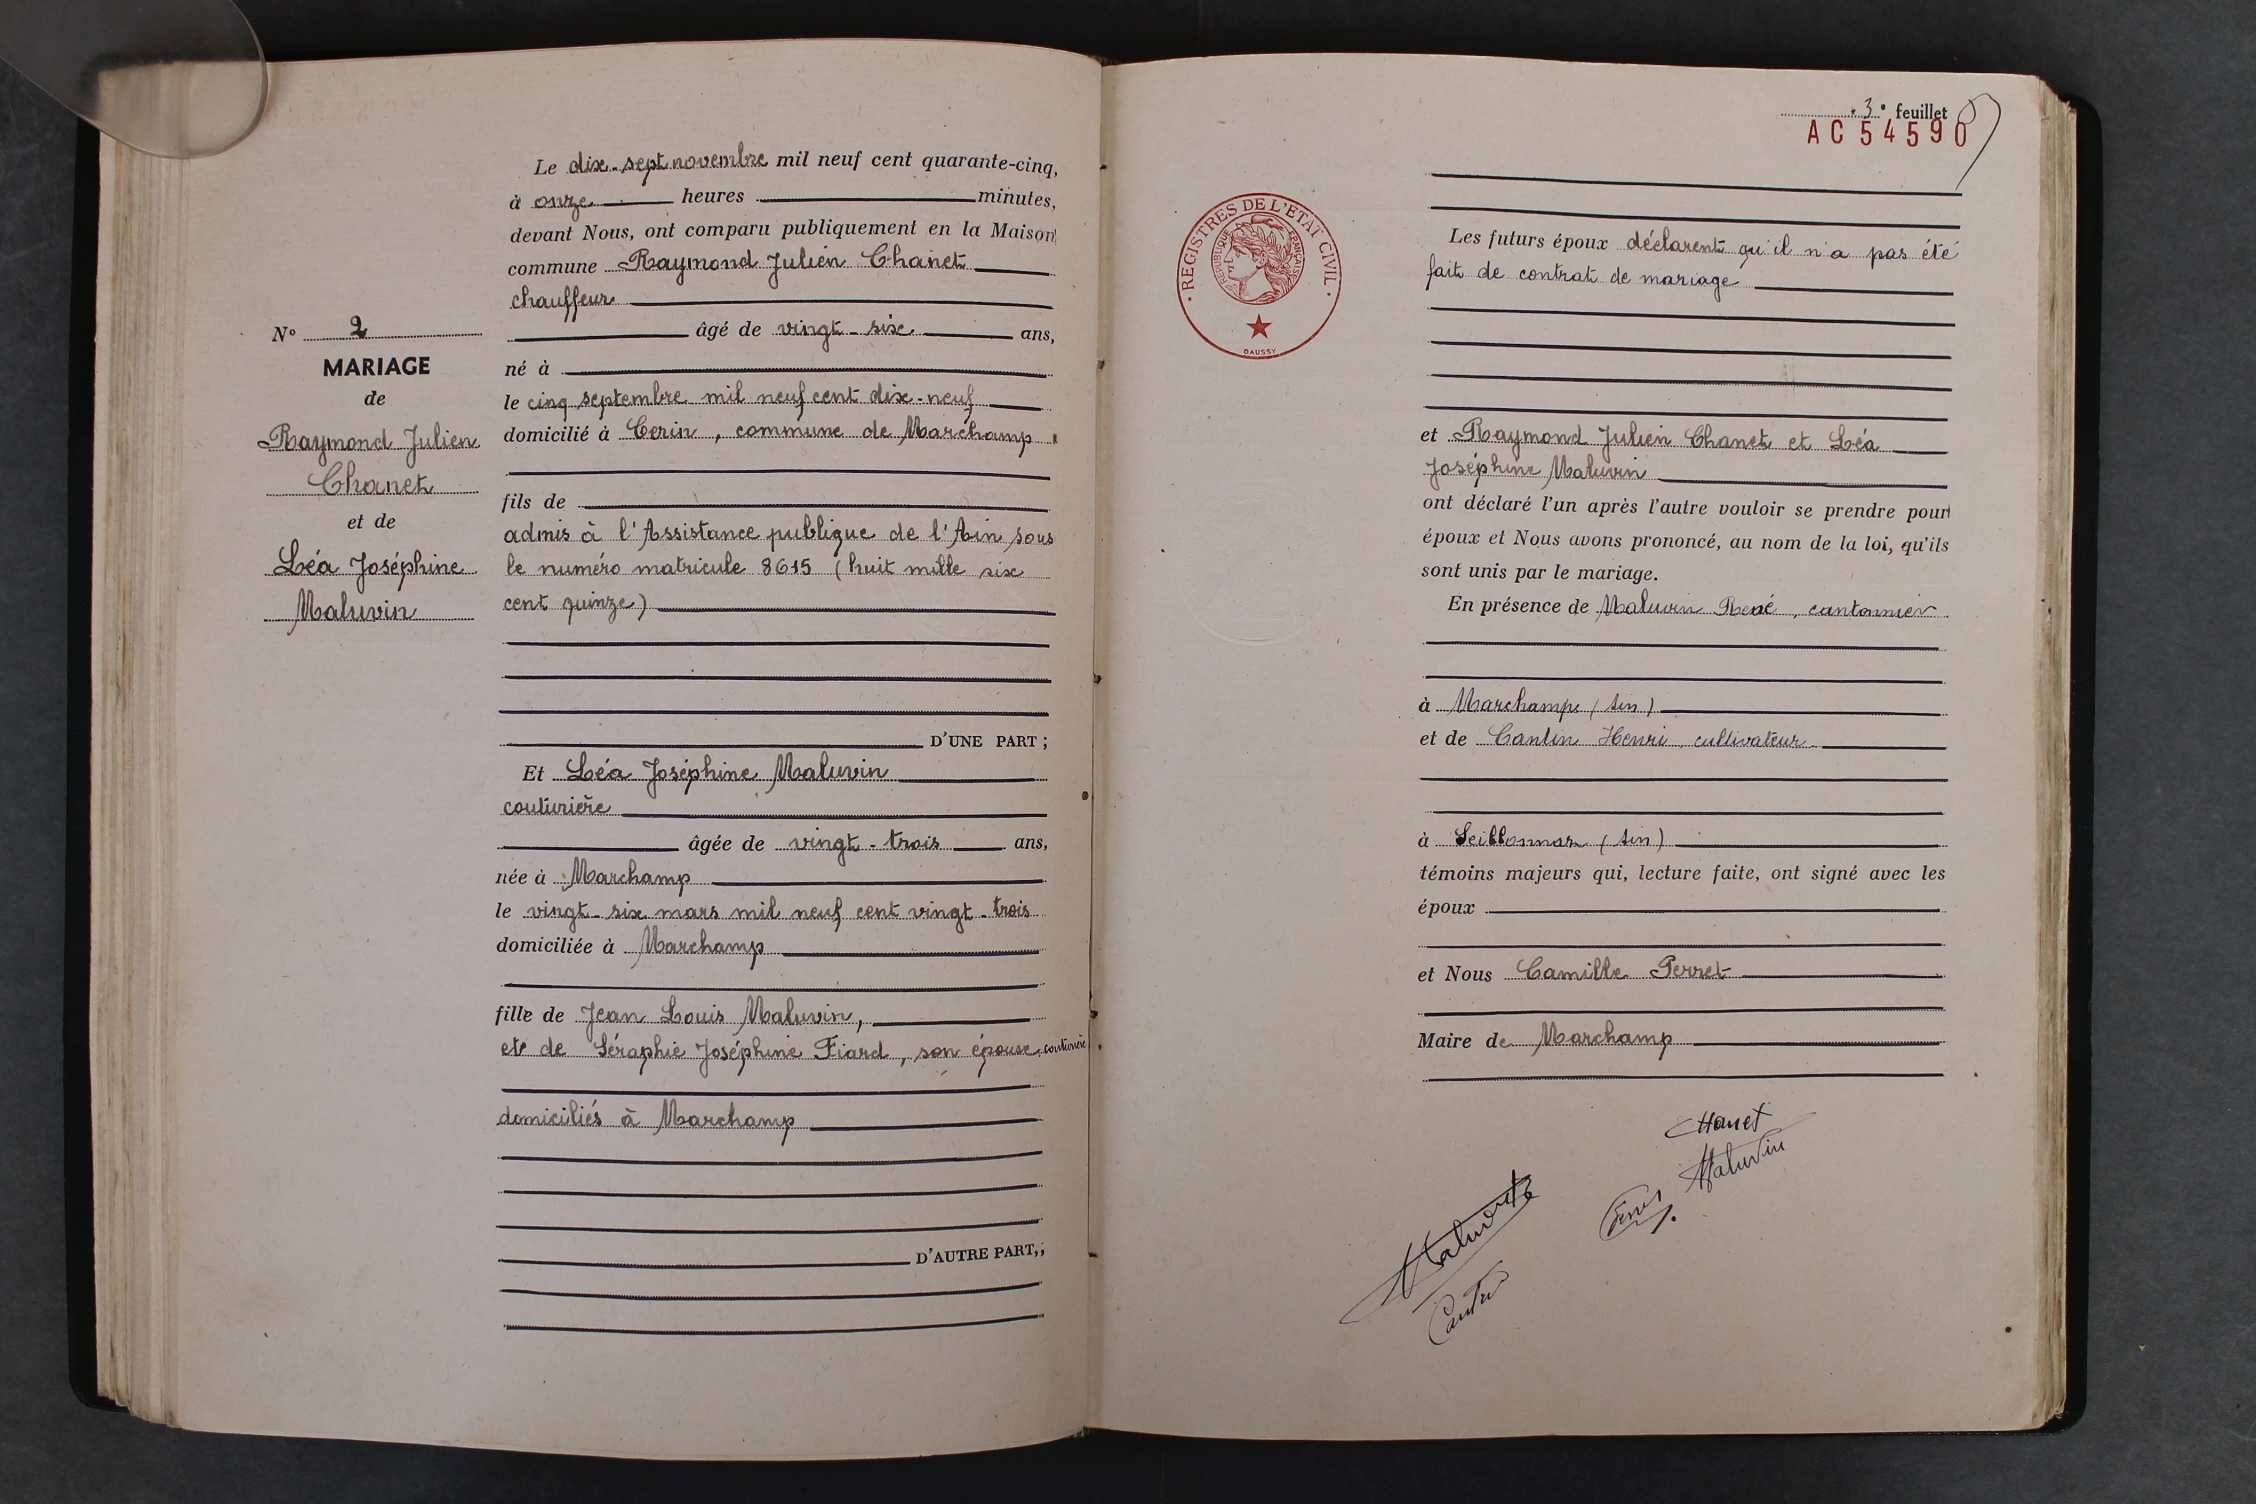 Le dix-sept novembre mil neuf cent quarante-cinq,
à onze heures minutes,
devant Nous, ont comparu publiquement en la Maison
commune Raymond Julien Chanet
chauffeur
âgé de vingt-six ans,
né à
le cinq septembre mil neuf cent dix-neuf
domicilié à Cerin, commune de Marchamp
fils de
admis à l'Assistance publique de l'Ain sous
le numéro matricule 8615 (huit mille six
cent quinze)
D'UNE PART ;
Et Léa Joséphine Maluvin
couturière
âgée de vingt-trois ans,
née à Marchamp
le vingt-six mars mil neuf cent vingt-trois
domiciliée à Marchamp
fille de Jean Louis Maluvin,
et de Séraphie Joséphine Fiard, son épouse, couturière
domiciliés à Marchamp
D'AUTRE PART, ;
N° 2
MARIAGE
de
Raymond Julien
Chanet
et de
Léa Joséphine
Maluvin
3e feuillet
AC 54590
REGISTRES DE L'ETAT CIVIL
REPUBLIQUE FRANÇAISE
DAUSSY
Les futurs époux déclarent qu'il n'a pas été
fait de contrat de mariage
et Raymond Julien Chanet et Léa
Joséphine Maluvin
ont déclaré l'un après l'autre vouloir se prendre pour
époux et Nous avons prononcé, au nom de la loi, qu'ils
sont unis par le mariage.
En présence de Maluvin René, cantonnier
à Marchamp (Ain)
et de Cantin Henri cultivateur
à Seillonnaz (Ain)
témoins majeurs qui, lecture faite, ont signé avec les
époux
et Nous Camille Perret
Maire de Marchamp
Chanet
Maluvin
Maluvin